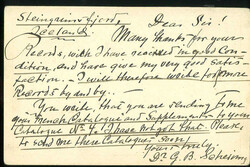 Steingrimsfjord,
Iceland.
Dear Sir!
Many thanks for your
Records, wich I have received in good Con-
dition, and have give my very good satis-
faction. I will therefore write for more
Records by and by.
You write, that you are sending to me
your French Catalogue and Supplements to your
Catalogue No I have not got that. Please
to send me these Catalogues soon!
Yours truly
G. B. Scheving